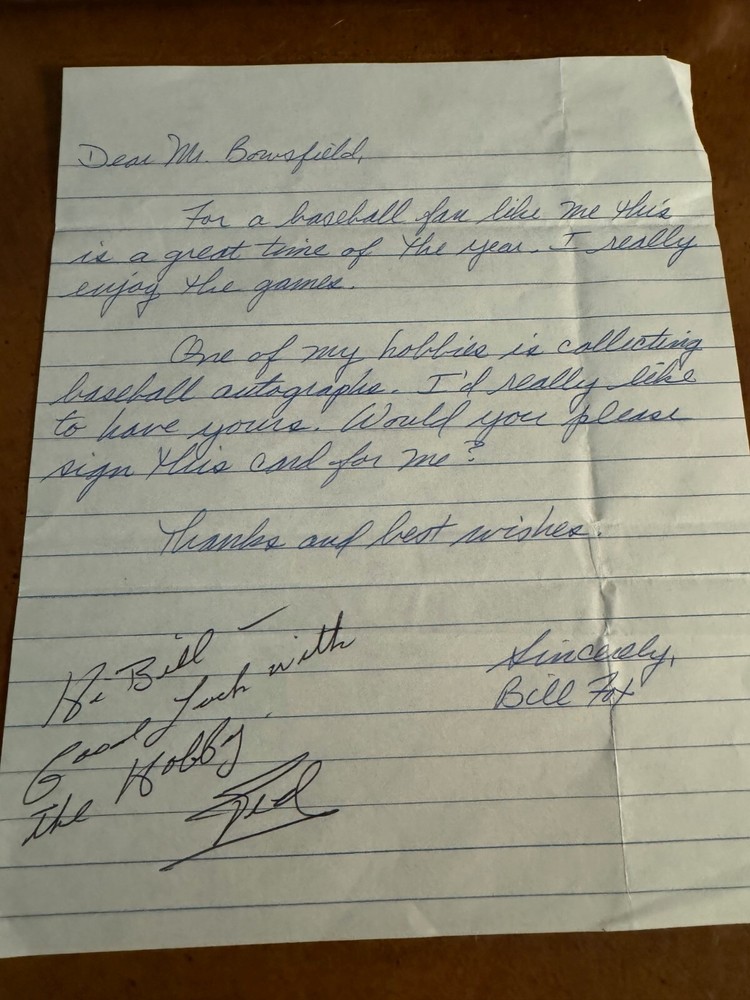 Dear Mr. Bowsfield,
For a baseball fan like me this
is a great time of the year. I really
enjoy the games.
One of my hobbies is collecting
baseball autographs. I'd really like
to have yours. Would you please
sign this card for me?
Thanks and best wishes.
Sincerely,
Bill Fox
Hi Bill —
Good Luck with
the Hobby.
Ted